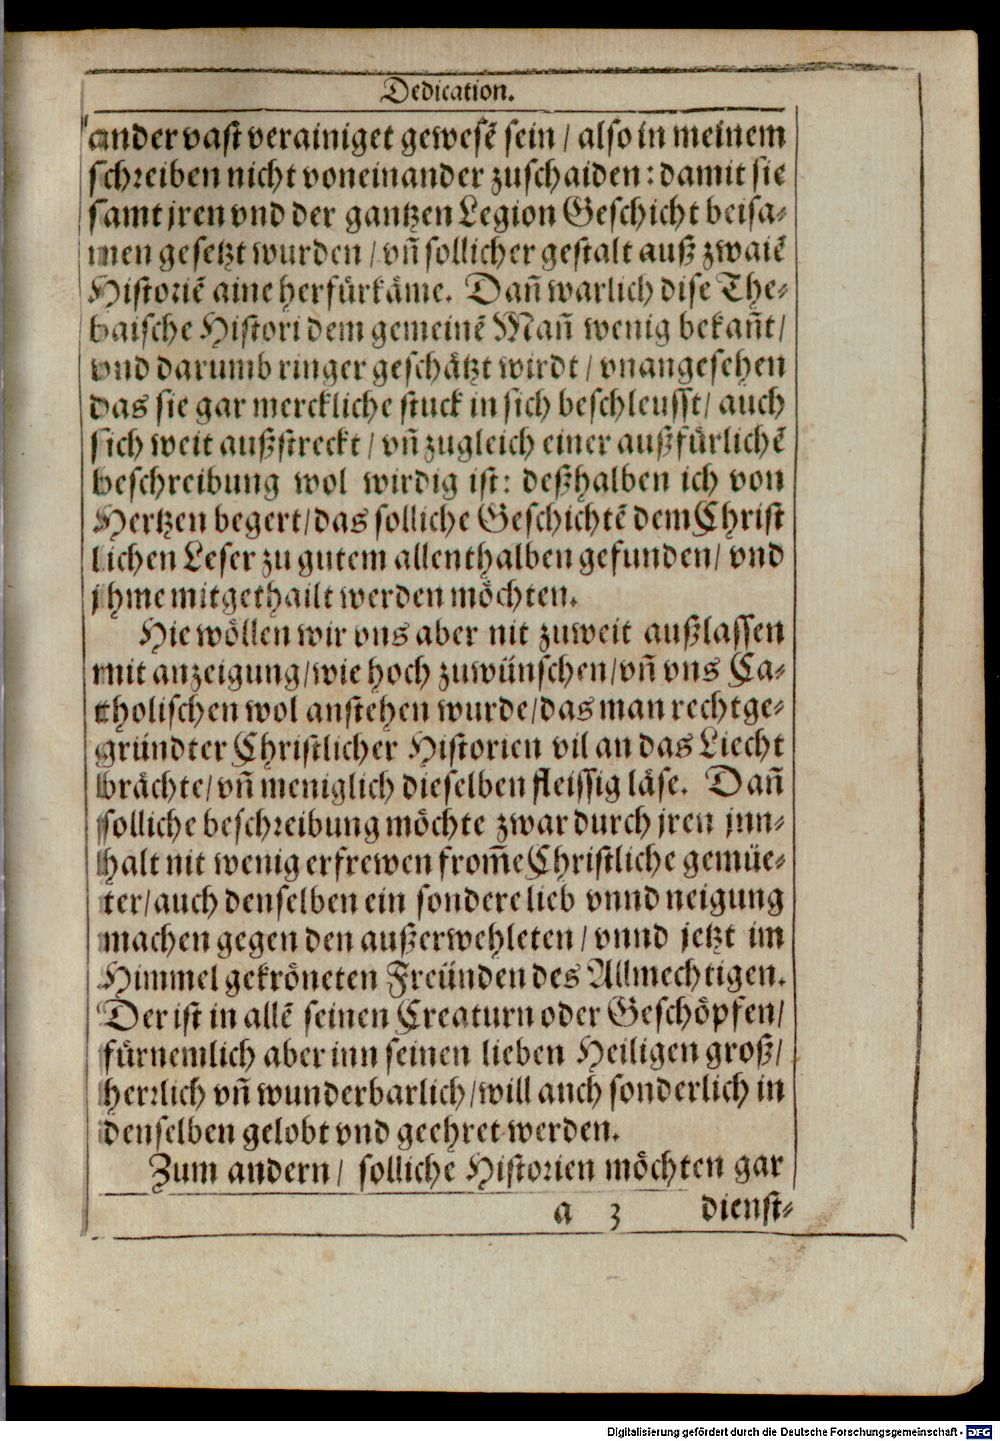 Dedication.
ander vast verainiget gewesẽ sein / also in meinem
schreiben nicht voneinander zuschaiden: damit sie
samt jren vnd der gantzen Legion Geschicht beisa-
men gesetzt wurden / vñ sollicher gestalt auß zwaiẽ
Historiẽ aine herfürkäme. Dañ warlich dise The-
baische Histori dem gemeinẽ Mañ wenig bekañt /
vnd darumb ringer geschätzt wirdt / vnangesehen
das sie gar merckliche stuck in sich beschleusst / auch
sich weit außstreckt / vñ zugleich einer außfürlichẽ
beschreibung wol wirdig ist: deßhalben ich von
Hertzen begert / das solliche Geschichtẽ dem Christ
lichen Leser zu gutem allenthalben gefunden / vnd
jhme mitgethailt werden möchten.
Hie wöllen wir vns aber nit zuweit außlassen
mit anzeigung / wie hoch zuwünschen / vñ vns Ca-
tholischen wol anstehen wurde / das man rechtge-
gründter Christlicher Historien vil an das Liecht
brächte / vñ meniglich dieselben fleissig läse. Dañ
solliche beschreibung möchte zwar durch jren jnn-
halt nit wenig erfrewen from̃e Christliche gemüe-
ter / auch denselben ein sondere lieb vnnd neigung
machen gegen den außerwehleten / vnnd jetzt im
Himmel gekröneten Freünden des Allmechtigen.
Der ist in allẽ seinen Creaturn oder Geschöpfen /
fürnemlich aber inn seinen lieben Heiligen groß /
herrlich vñ wunderbarlich / will auch sonderlich in
denselben gelobt vnd geehret werden.
Zum andern / solliche Historien möchten gar
a 3 dienst-
Digitalisierung gefördert durch die Deutsche Forschungsgemeinschaft - DFG